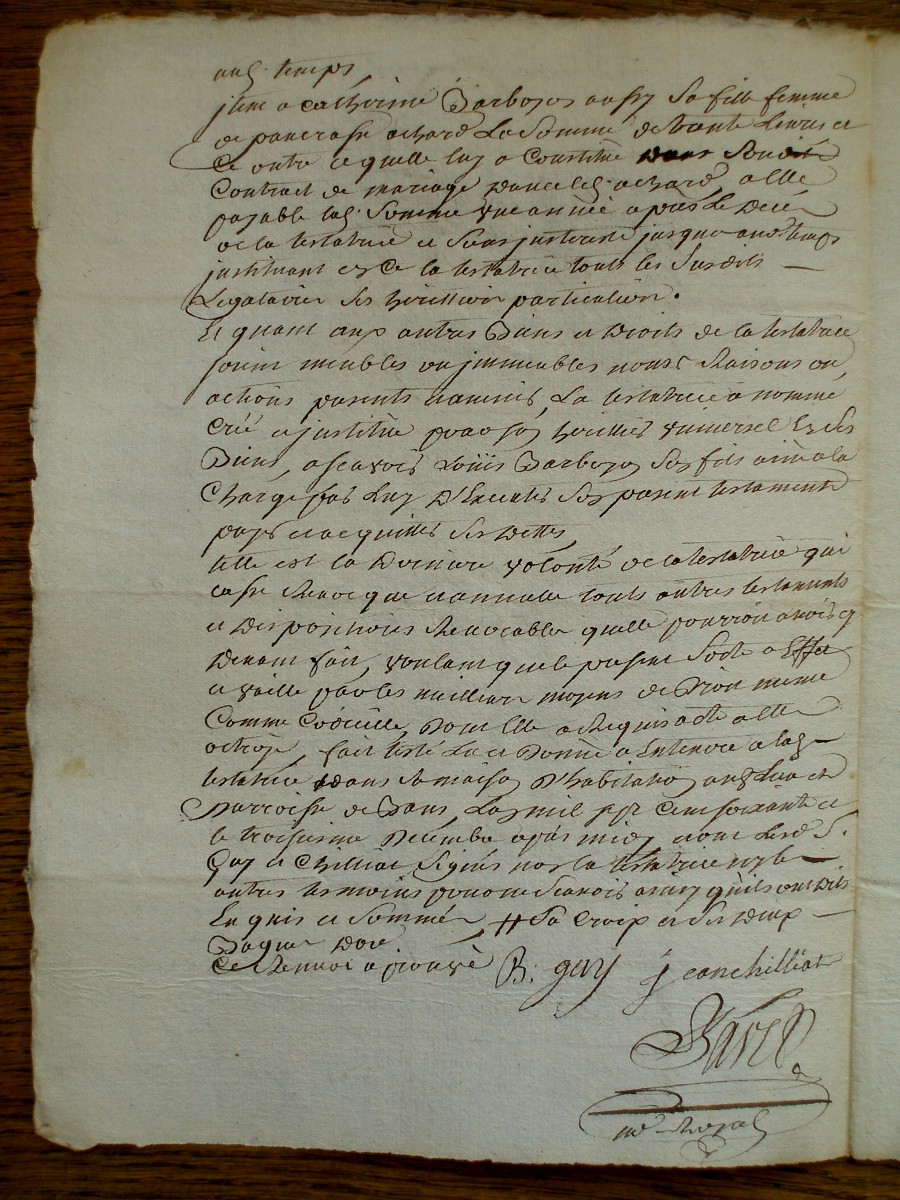 aud. temps
jtem a catherine Barbozos aussy sa fille femme
de pancrasse achard La Somme de trante Livres et
Ce outre ce quelle luy a Constitue dans Sondit
Contract de mariage achard a Elle
payable lad. Somme une année apres Le Decé
de la testatrice et sans jnterest jusque aud temps
jnstituant en Ce la testatrice touts les Susdits
Legataires ses heritiers particuliers.
Et quant aux autres Biens et Droits de la testatrice
soient meubles ou jmmeubles noms Raisons ou
actions presents La testatrice a nomme
Créé et jnstitue pour son heritier universel En ses
Biens, ascavoir Loüis Barbozos son fils ainé a la
Charge par Luy D'Executer son present testament
payer et acquitter ses Dettes,
telle est la Derniere volonté de la testatrice qui
casse Revoque et annulle touts autres testaments
et Dispositions Revocables quelle pourroit avoir cy
Devant fait, voulant que le present Sorte a Effet
et vaille par les meilleurs moyens de Droit meme
Comme Codicille, Dont Elle a Requis acte a Elle
octroyé, fait Leu et Donné a Entendre a lad
testatrice dans sa maison D'habitation aud Lieu et
Parroisse de Dans mil sept Cent soixante et
le troisieme Decembre apres midy Lesd S.
Gay et Chilliat Signés non la testatrice ny les
autres tesmoins pour ne scavoir ainsy quils ont Dits
Enquis et Sommés # Sa Croix et ses Deux
Bagues Dor.
Ce Renvoi aprouvé B: gay jean chilliat
Favre
no.re Royal